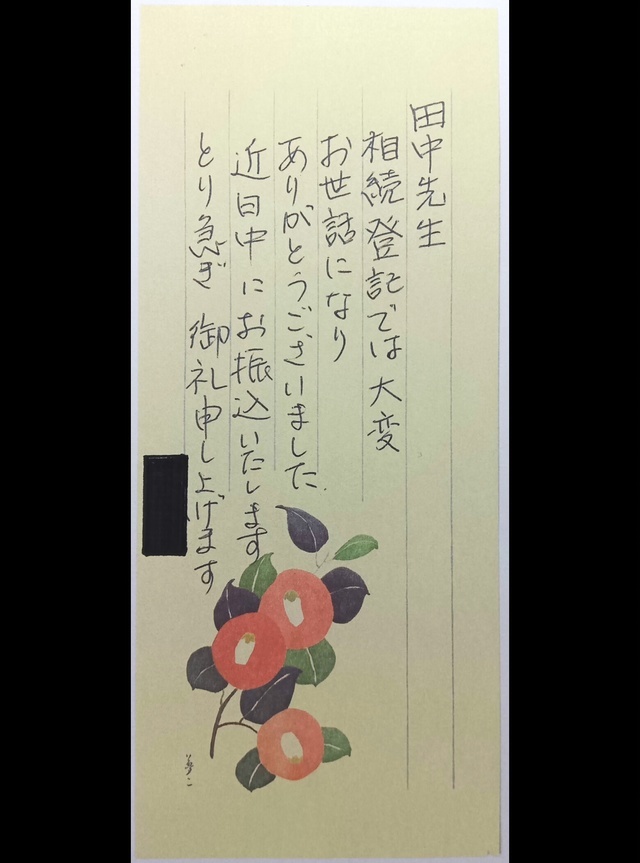 田中先生
相続登記では大変
お世話になり
ありがとうございました.
近日中にお振込いたします
とり急ぎ 御礼申し上げます
夢二